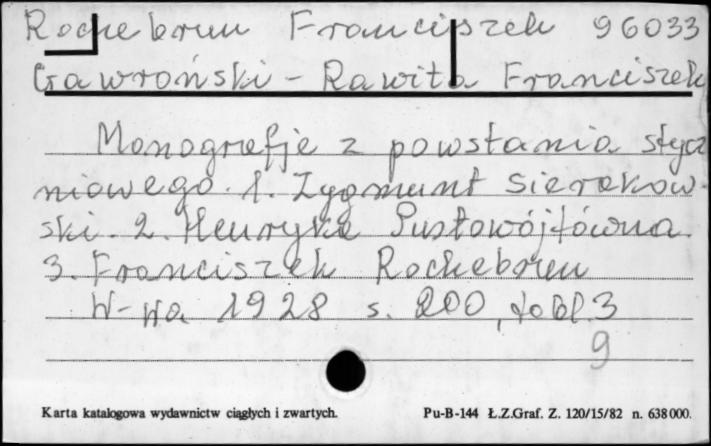 Rochebrun Franciszek 96033
Gawroński-Rawita Franciszek
Monografje z powstania stycz
niowego. 1. Zygmunt Sierakow-
ski. 2. Henryka Pustowójtówna.
3. Franciszek Rochebrun
W-wa 1928 s. 200, tabl. 3
9
Karta katalogowa wydawnictw ciągłych i zwartych. Pu-B-144 Ł.Z.Graf. Z. 120/15/82 n. 638000.